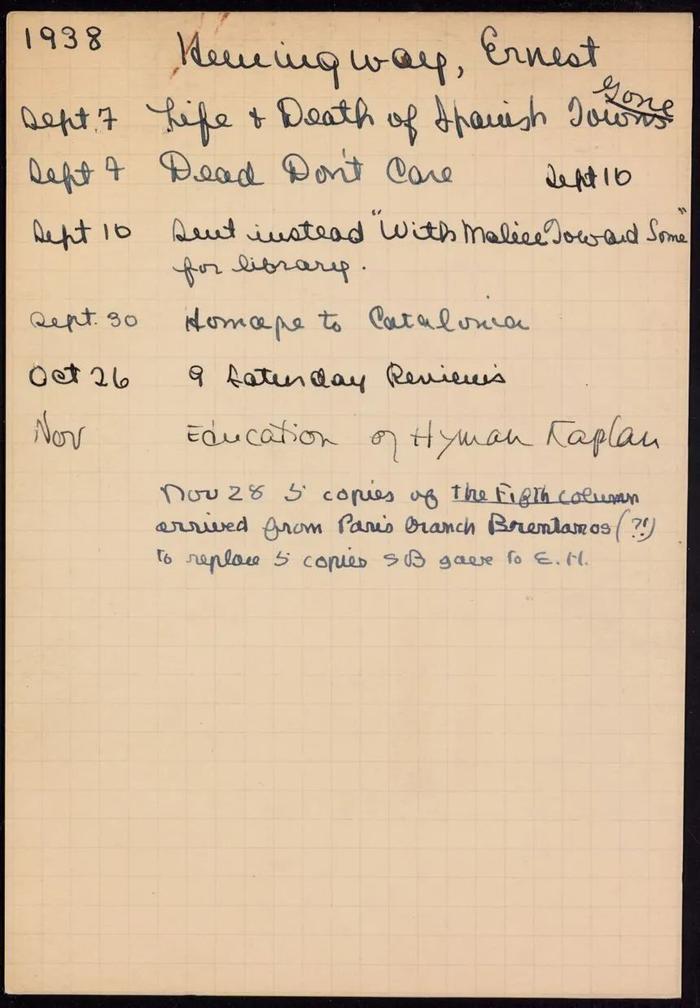 1938 Hemingway, Ernest
Sept. 7 Life & Death of Spanish Towns Gone
Sept 7 Dead Don't Care Sept 10
Sept 10 Sent instead "With Malice Toward Some"
for library.
Sept. 30 Homage to Catalonia
Oct 26 9 Saturday Reviews
Nov Education of Hyman Kaplan
Nov 28 5 copies of the Fifth column
arrived from Paris branch Brentanos (?!)
to replace 5 copies SB gave to E.H.